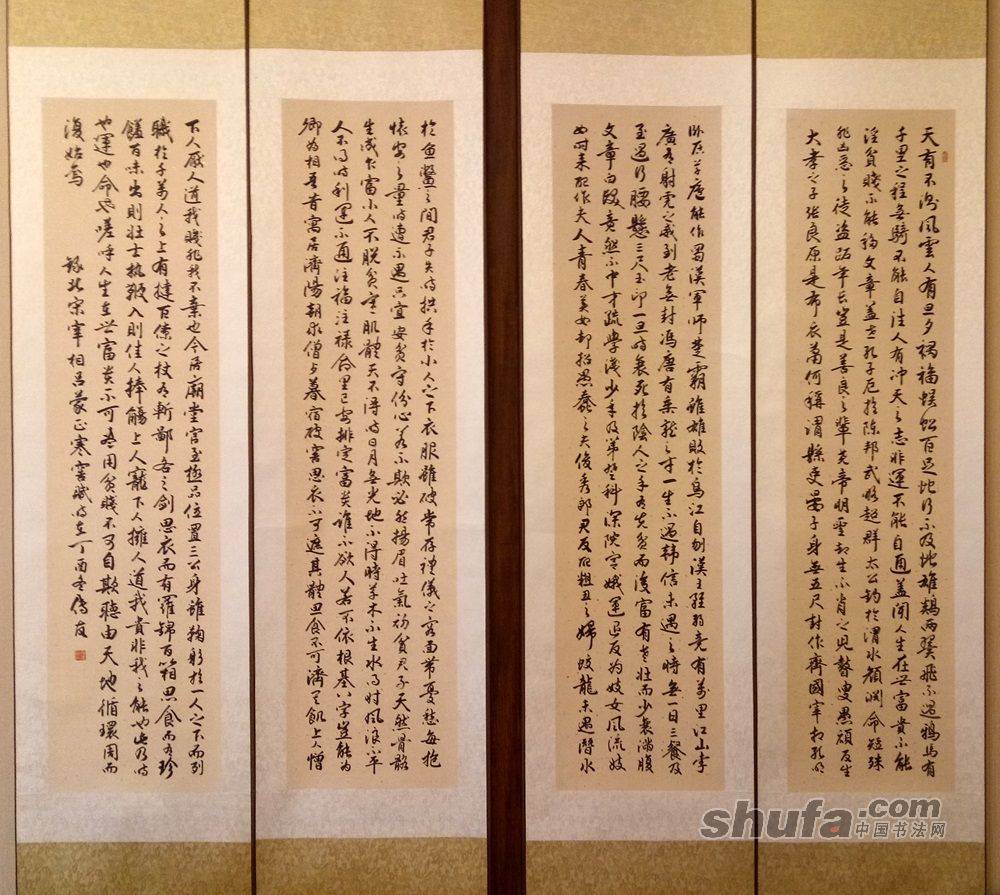 天有不測風雲人有旦夕禍福蜈蚣百足地行不及蛇雄鷄兩翼飛不過鴉馬有
千里之程無騎不能自往人有冲天之志非運不能自通蓋聞人生在世富貴不能
淫貧賤不能移文章蓋世孔子厄於陳邦武略超群太公釣於渭水顔淵命短殊
非凶惡之徒盗跖年長豈是善良之輩堯帝明聖却生不肖之兒瞽叟愚頑反生
大孝之子張良原是布衣蕭何稱謂縣吏晏子身無五尺封作齊國宰相孔明
卧居草廬能作蜀漢軍師楚霸雖雄敗於烏江自刎漢王雖弱竟有萬里江山李
廣有射虎之威到老無封馮唐有乘龍之才一生不遇韓信未遇之時無一日三餐及
至遇行腰懸三尺玉印一旦時衰死於陰人之手有先貧而後富有老壯而少衰滿腹
文章白髮竟然不中才疏學淺少年及第登科深院宫娥運退反為妓女風流妓
女時來配作夫人青春美女却招愚蠢之夫俊秀郎君反配粗丑之婦蛟龍未遇潛水
於魚鱉之間君子失時拱手於小人之下衣服雖破常存禮儀之容面帶憂愁每抱
懷安之量時遭不遇只宜安貧守份心若不欺必然揚眉吐氣初貧君子天然骨骼
生成乍富小人不脱貧寒肌體天不得時日月無光地不得時草木不生水不得時風浪不平
人不得時利運不通注福注禄命里已安排定富貴誰不欲人若不依根基八字豈能為
卿為相吾昔寓居洛陽朝求僧与暮宿破窖思衣不可遮其體思食不可濟其飢上人憎
下人厭人道我賤非我不棄也今居廟堂官至極品位置三公身雖鞠躬於一人之下而列
職於千萬人之上有撻百僚之杖有斬鄙吝之劍思衣而有羅錦百箱思食而有珍
饈百味出則壯士執鞭入則佳人捧觴上人寵下人擁人道我貴非我之能也此乃時
也運也命也嗟呼人生在世富貴不可盡用貧賤不可自欺聽由天地循環周而
復始焉 録北宋宰相吕蒙正寒窖賦時在丁酉冬傳友
shufa.com
中国书法网